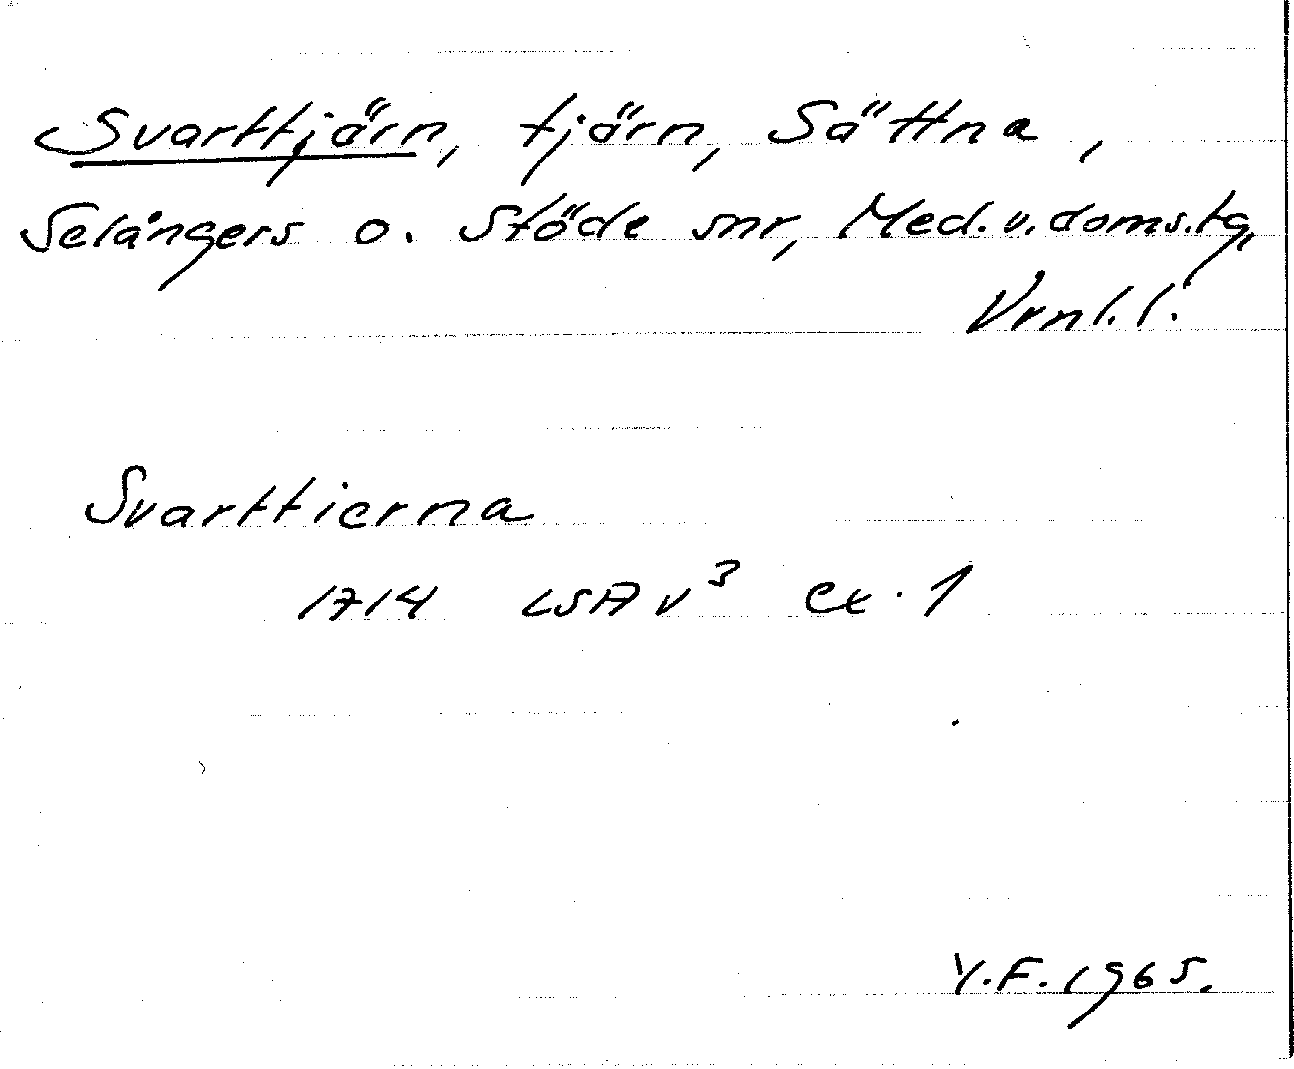 Svarttjärn, tjärn, Sättna,
Selångers o. Stöde snr, Med. v. doms.tg,
Vrnl. l.
Svarttierna
1714 LSA V³ Ce. 1
Y.F. 1965.